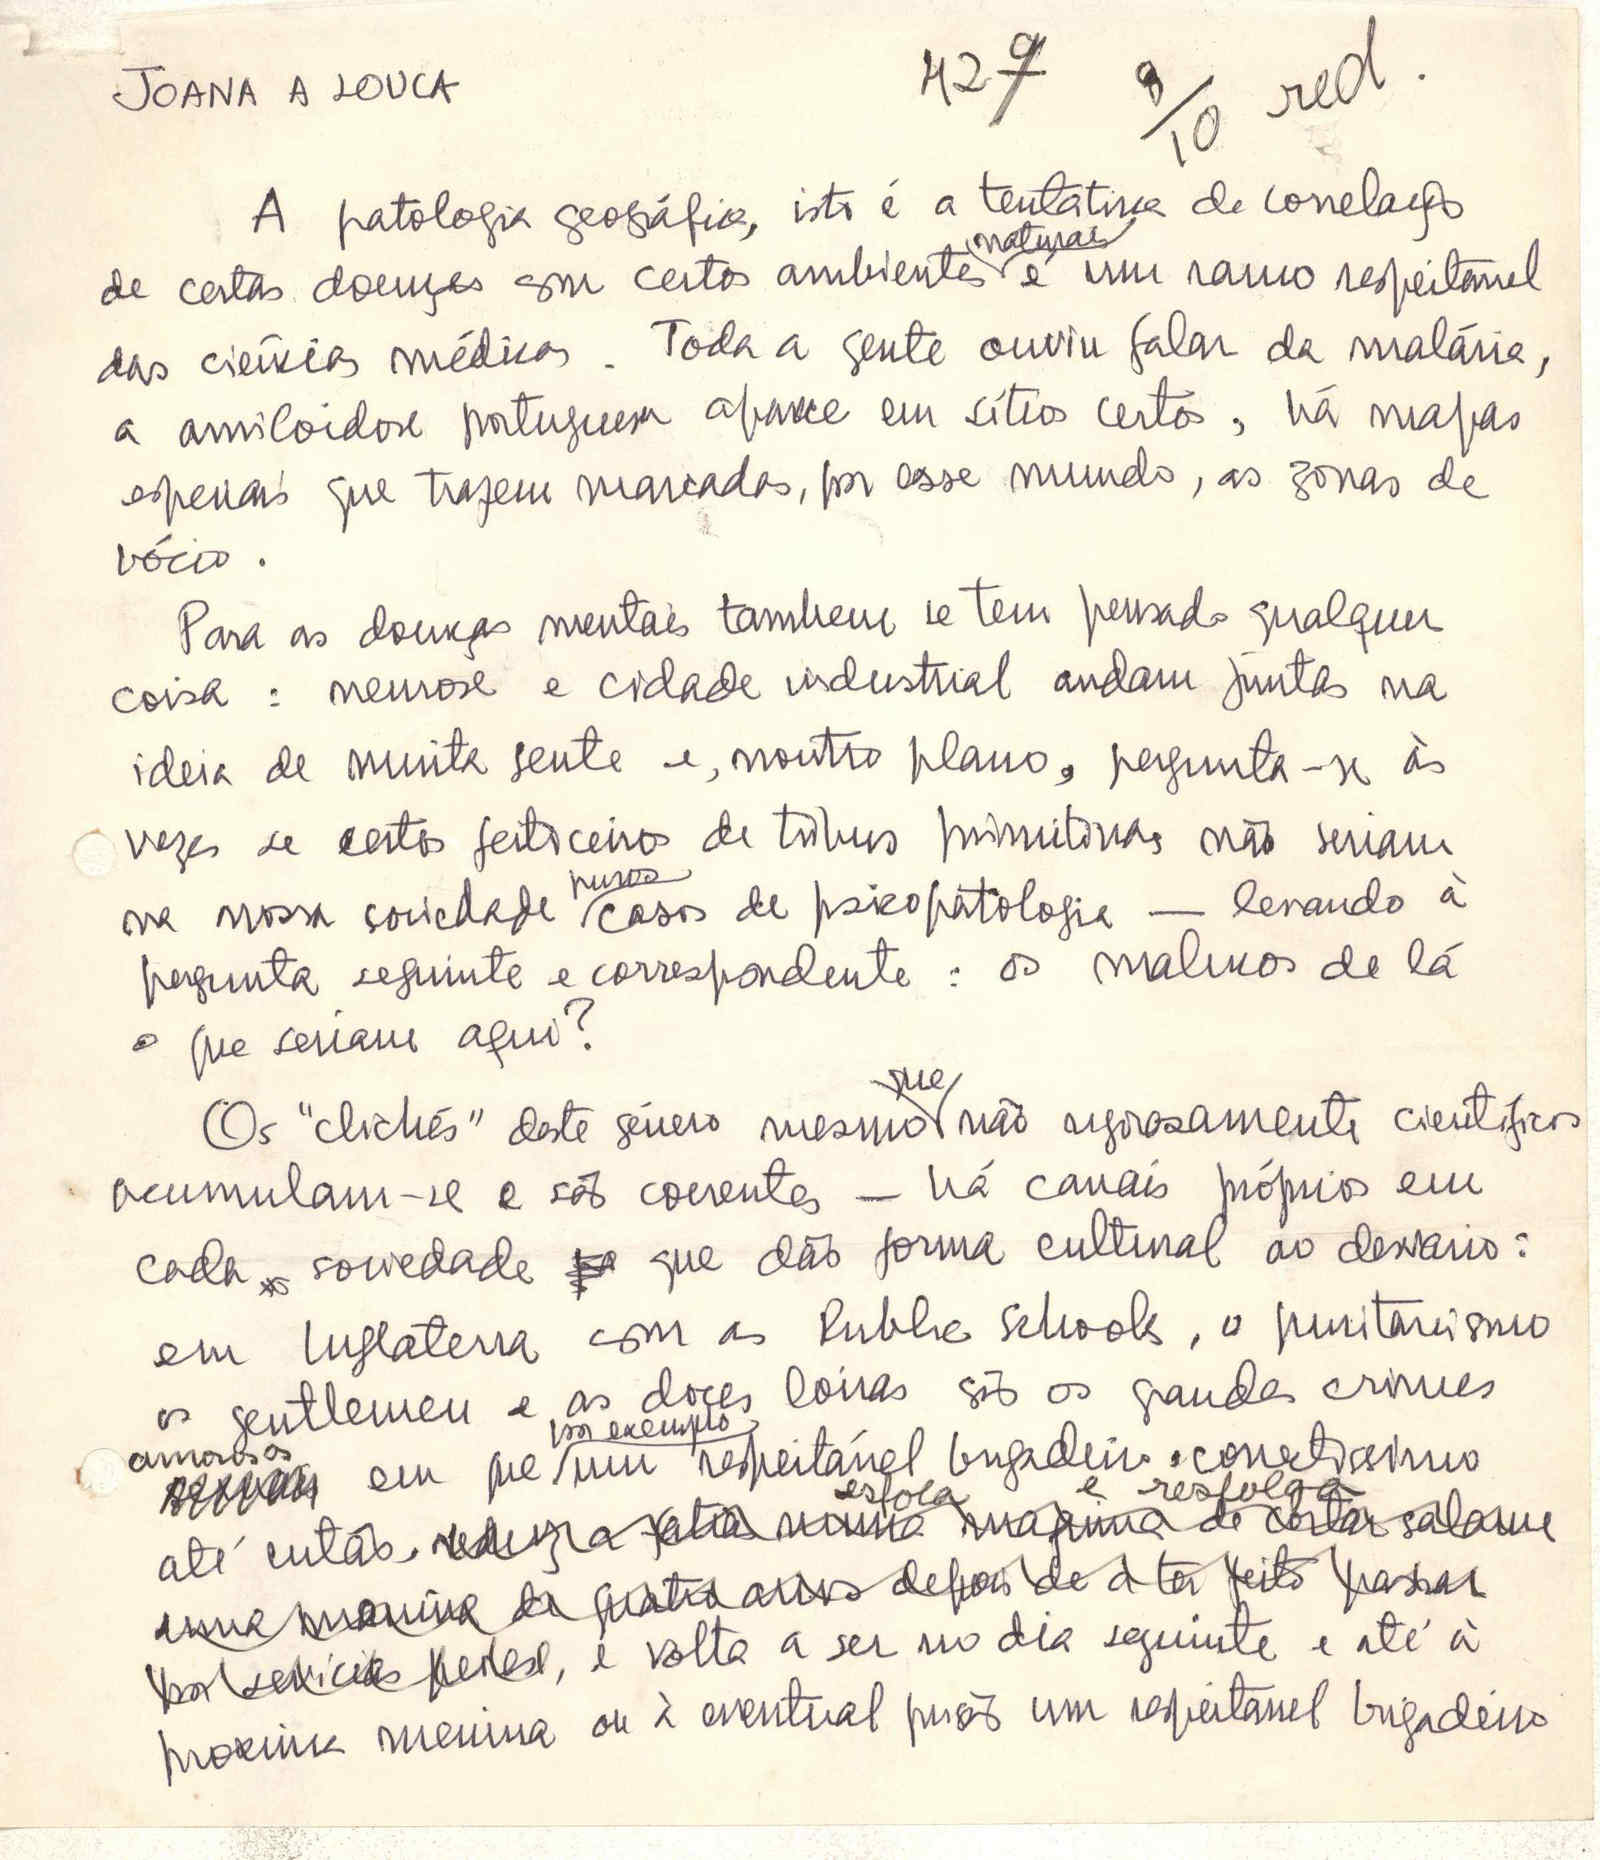 JOANA A LOUCA
427 8/10 red.
A patologia geográfica, isto é a tentativa de correlação
de certas doenças com certos ambientes naturais é um ramo respeitável
das ciências médicas. Toda a gente ouviu falar da malária,
a amiloidose portuguesa aparece em sítios certos, há mapas
especiais que trazem marcadas, por esse mundo, as zonas de
bócio.
Para as doenças mentais tambem se tem pensado qualquer
coisa : neurose e cidade industrial andam juntas na
ideia de muita gente e, noutro plano, pergunta-se às
vezes se certos feiticeiros de tribus primitivas não seriam
na nossa sociedade puros casos de psicopatologia — levando à
pergunta seguinte e correspondente : os malucos de lá
o que seriam aqui?
Os "clichés" deste género mesmo que não rigorosamente cientificos
acumulam-se e são coerentes — há canais próprios em
cada sociedade que dão forma cultural ao desvario :
em Inglaterra com as Public Schools, o puritanismo
os gentlemen e as doces loiras são os grandes crimes
amorosos em que por exemplo um respeitável brigadeiro correctissimo
esfola e resfolga
até então, reduz a fatias numa maquina de cortar salame
uma menina de quatro anos depois de a ter feito passar
por sevicias , e volta a ser no dia seguinte e até à
proxima menina ou à eventual prisão um respeitavel brigadeiro